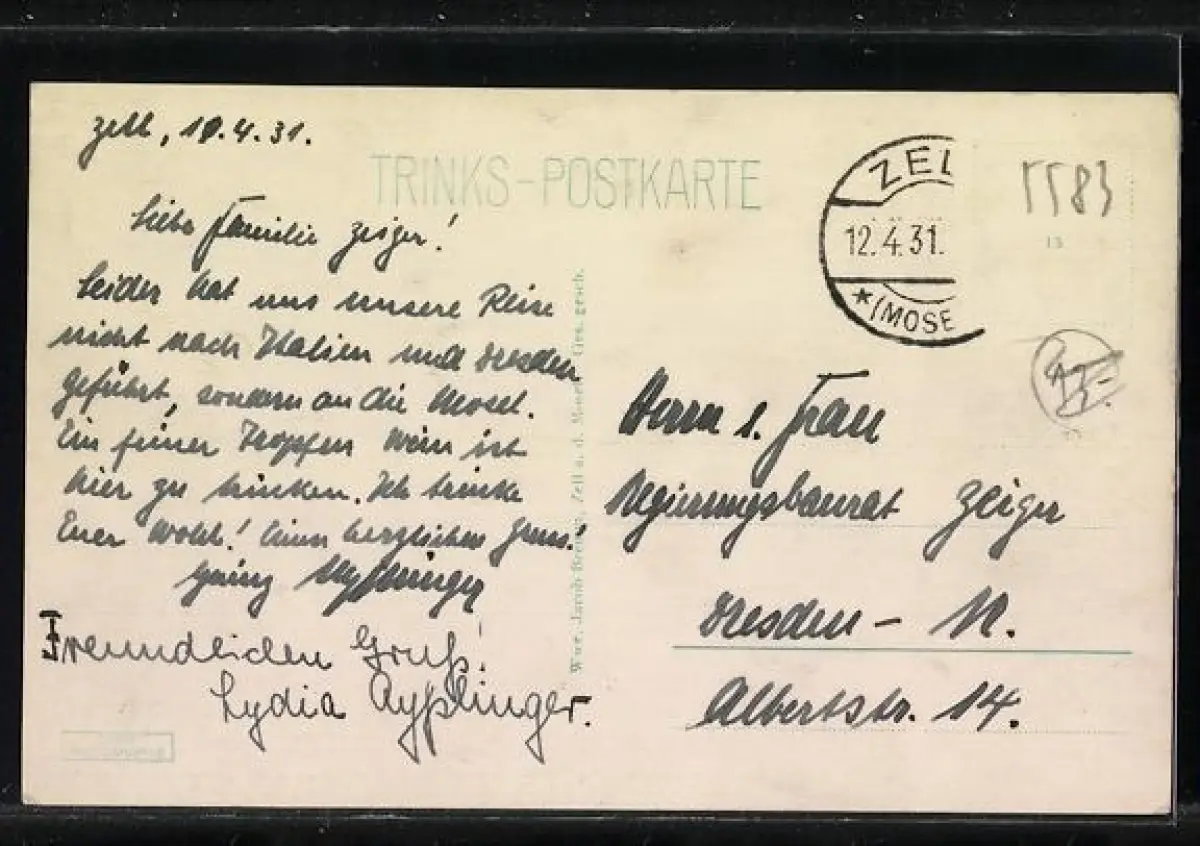 Zell, 10.4.31.
TRINKS-POSTKARTE
Liebe Familie Zeiger!
Leider hat uns unsere Reise
nicht nach Italien und Dresden
geführt, sondern an die Mosel.
Ein feiner Tropfen Wein ist
hier zu trinken. Ich trinke
Euer Wohl! Einen herzlichen Gruss.
Freundlichen Gruß!
Lydia Aypplinger.
ZEL
12.4.31.
(MOSE
5583
13
Herrn u. Frau
Regierungsbaurat Zeiger
Dresden - N.
Albertstr. 14.
Wwe. Jacob Zell a. d. Ges. gesch.